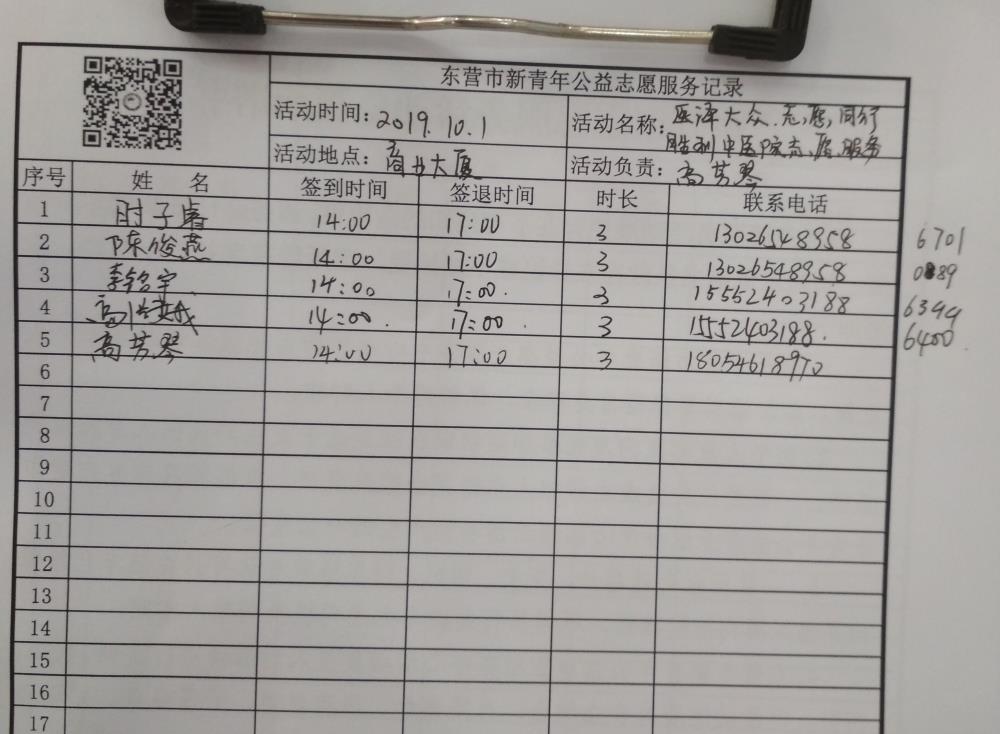 东营市新青年公益志愿服务记录
活动时间：2019.10.1 活动名称：医泽大众.志愿同行
胜利中医院志愿服务
活动地点：商业大厦 活动负责：高芳琴
序号 姓 名 签到时间 签退时间 时长 联系电话
1 肘子睿 14:00 17:00 3 13026548958 6701
2 陈俊燕 14:00 17:00 3 13026548958 0889
3 李铭宇 14:00 17:00. 3 15552403188 6399
4 14:00. 17:00. 3 15552403188. 6400.
5 高芳琴 14:00 17:00 3 18054618970
6
7
8
9
10
11
12
13
14
15
16
17